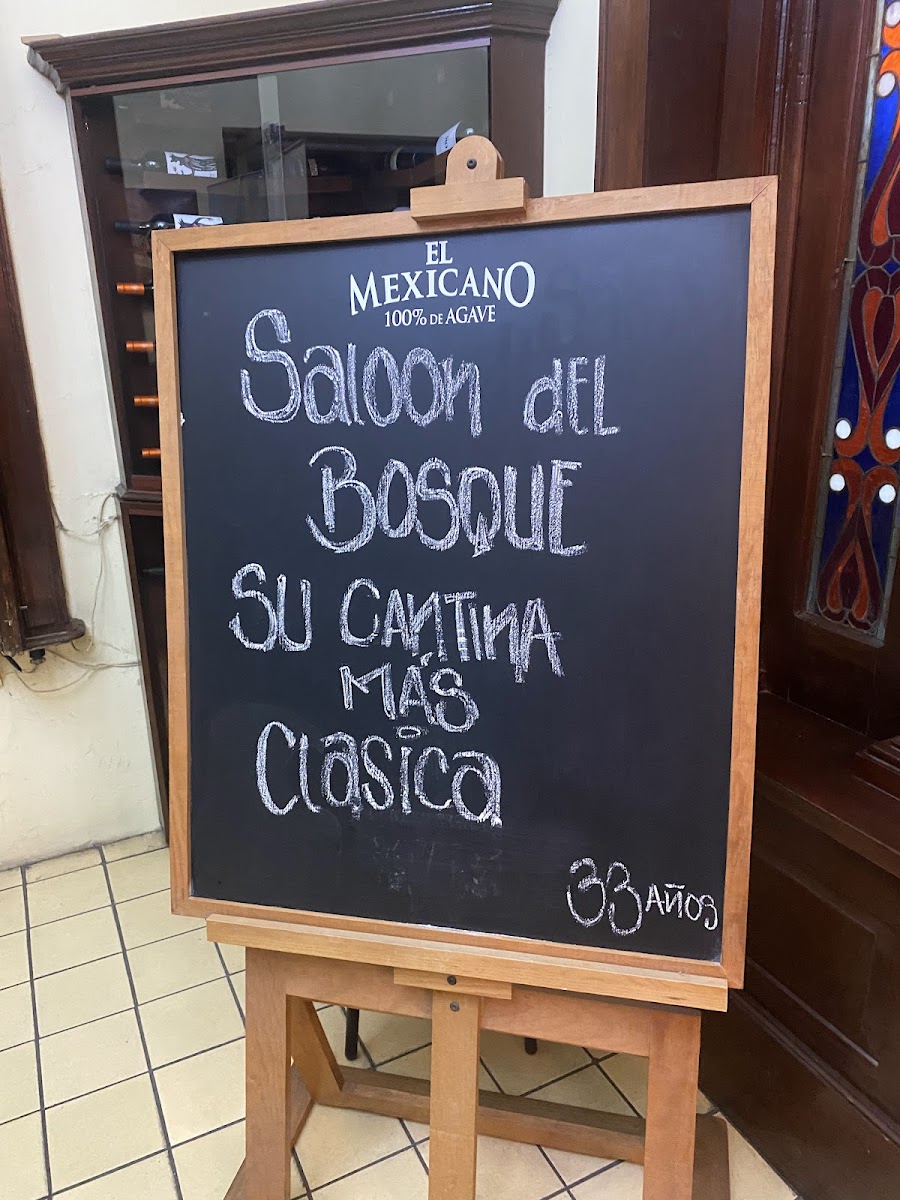 EL
MEXICANO
100% DE AGAVE
Saloon dEL
BOSQUE
SU CANTINA
MÁS
Clasica
33 AÑOS